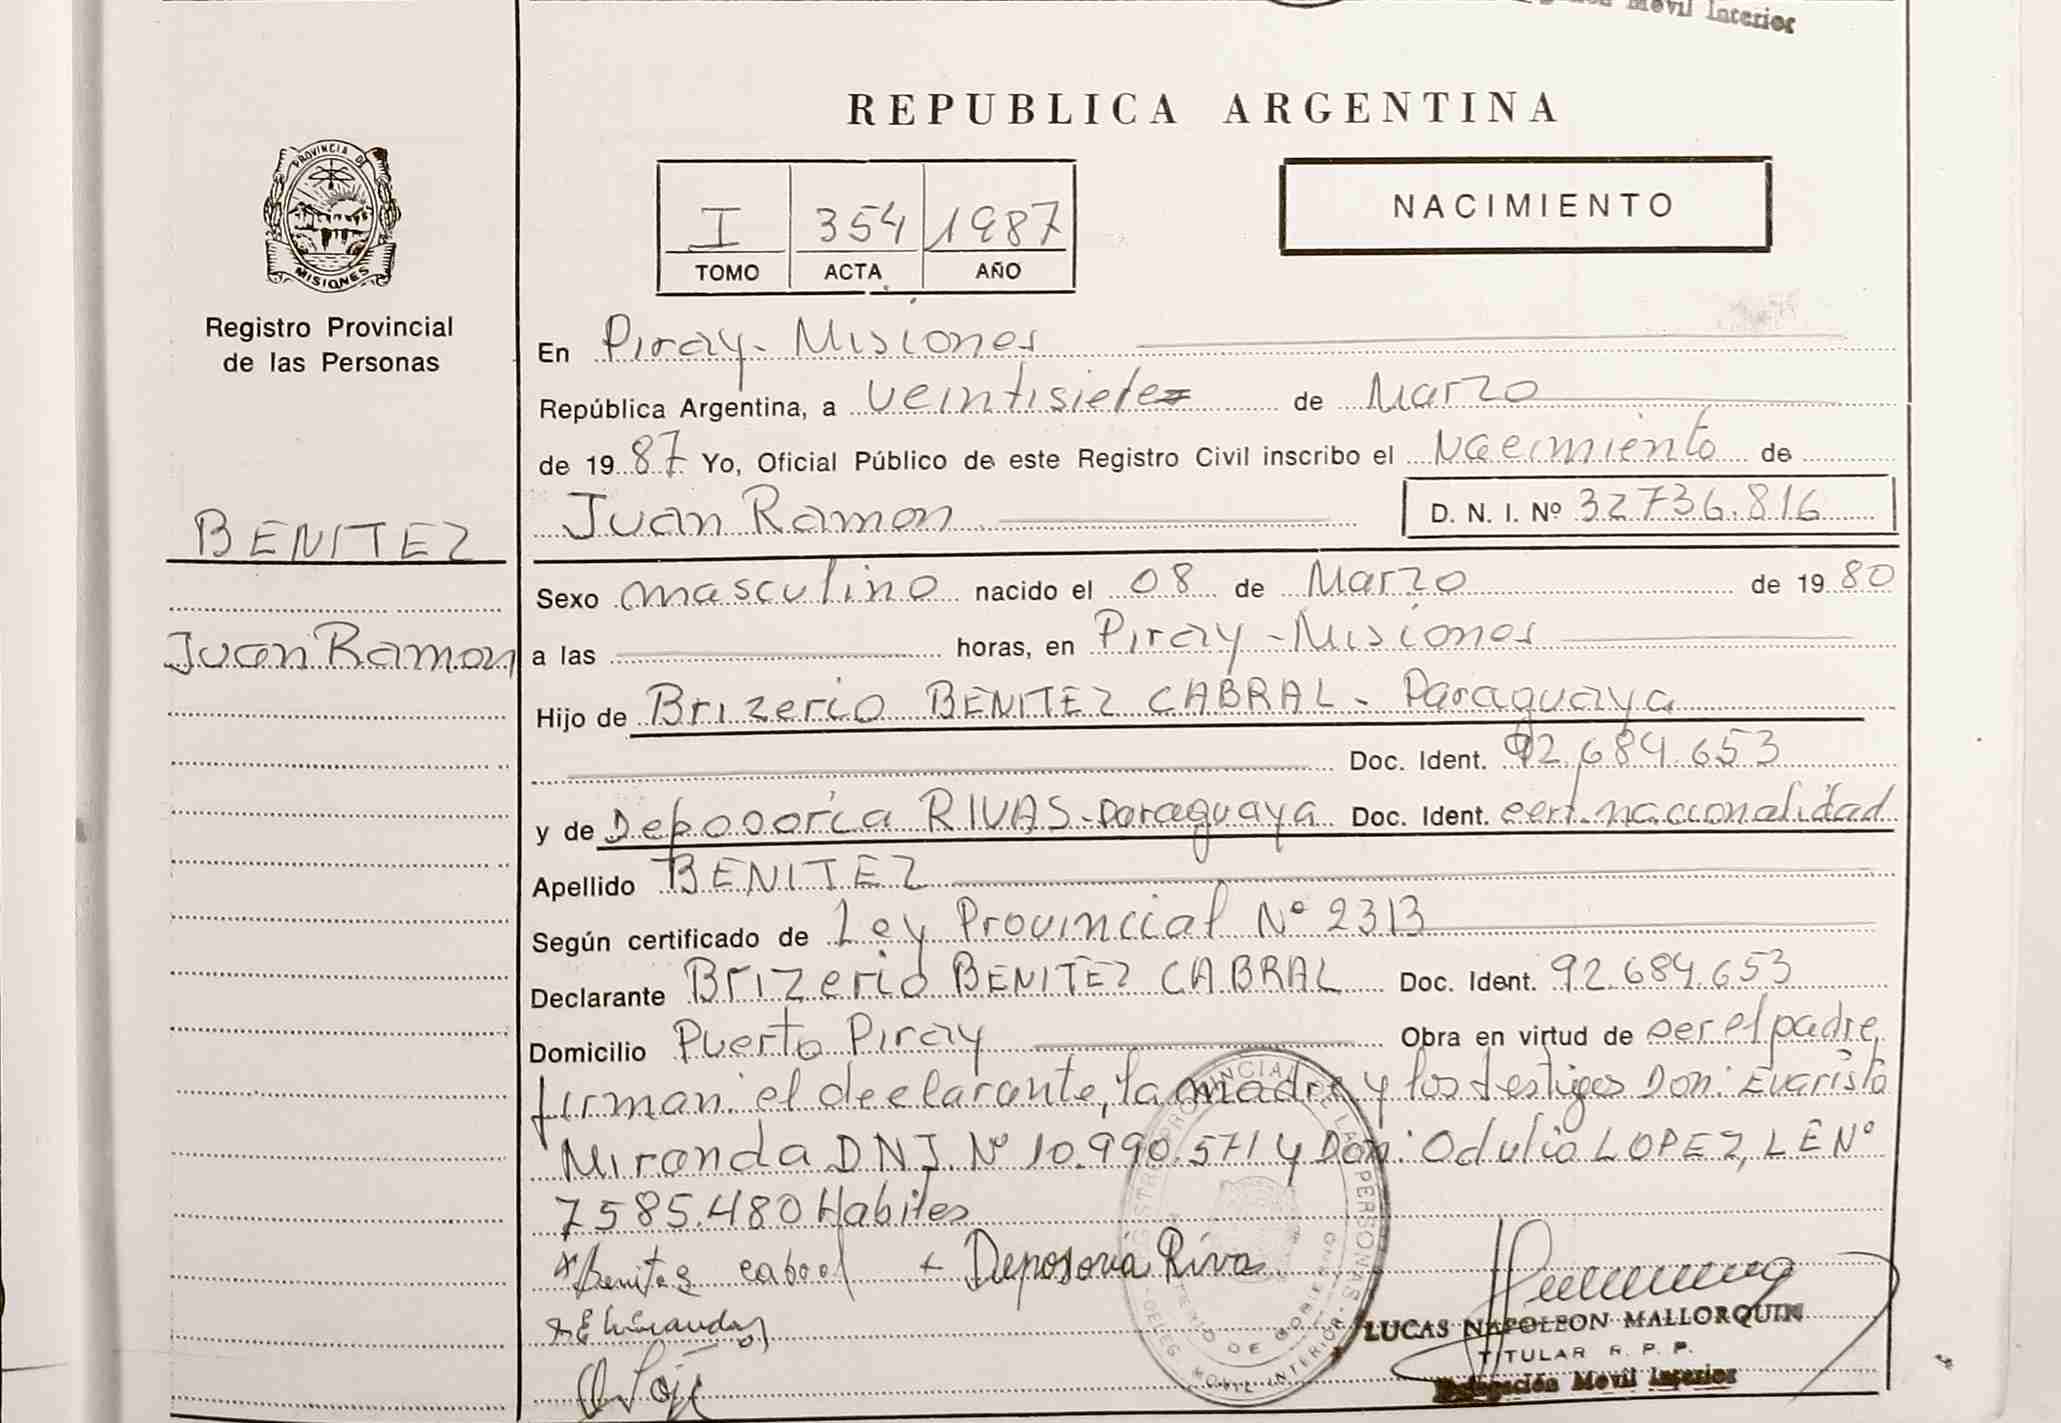 Movil Interior
REPUBLICA ARGENTINA
PROVINCIA DE
MISIONES
Registro Provincial
de las Personas
I 354 1987
TOMO ACTA AÑO
NACIMIENTO
En Piray - Misiones
República Argentina, a veintisiete de Marzo
de 1987 Yo, Oficial Público de este Registro Civil inscribo el Nacimiento de
Juan Ramon D. N. I. Nº 32736.816
BENITEZ
Juan Ramon
Sexo masculino nacido el 08 de Marzo de 1980
a las horas, en Piray - Misiones
Hijo de Brizerio BENITEZ CABRAL - Paraguaya
Doc. Ident. 92.684.653
y de RIVAS - Paraguaya Doc. Ident. cert. nacionalidad
Apellido BENITEZ
Según certificado de Ley Provincial Nº 2313
Declarante Brizerio BENITEZ CABRAL Doc. Ident. 92.684.653
Domicilio Puerto Piray Obra en virtud de ser el padre,
firman: el declarante, la madre y los testigos Don: Evaristo
Miranda DNI Nº 10.990.571 y Don: Odulio LOPEZ, LE Nº
7585.480 Habiles
Benites + Deposoria Riva
LUCAS NAPOLEON MALLORQUIN
TITULAR R. P. P.
Delegación Movil Interior